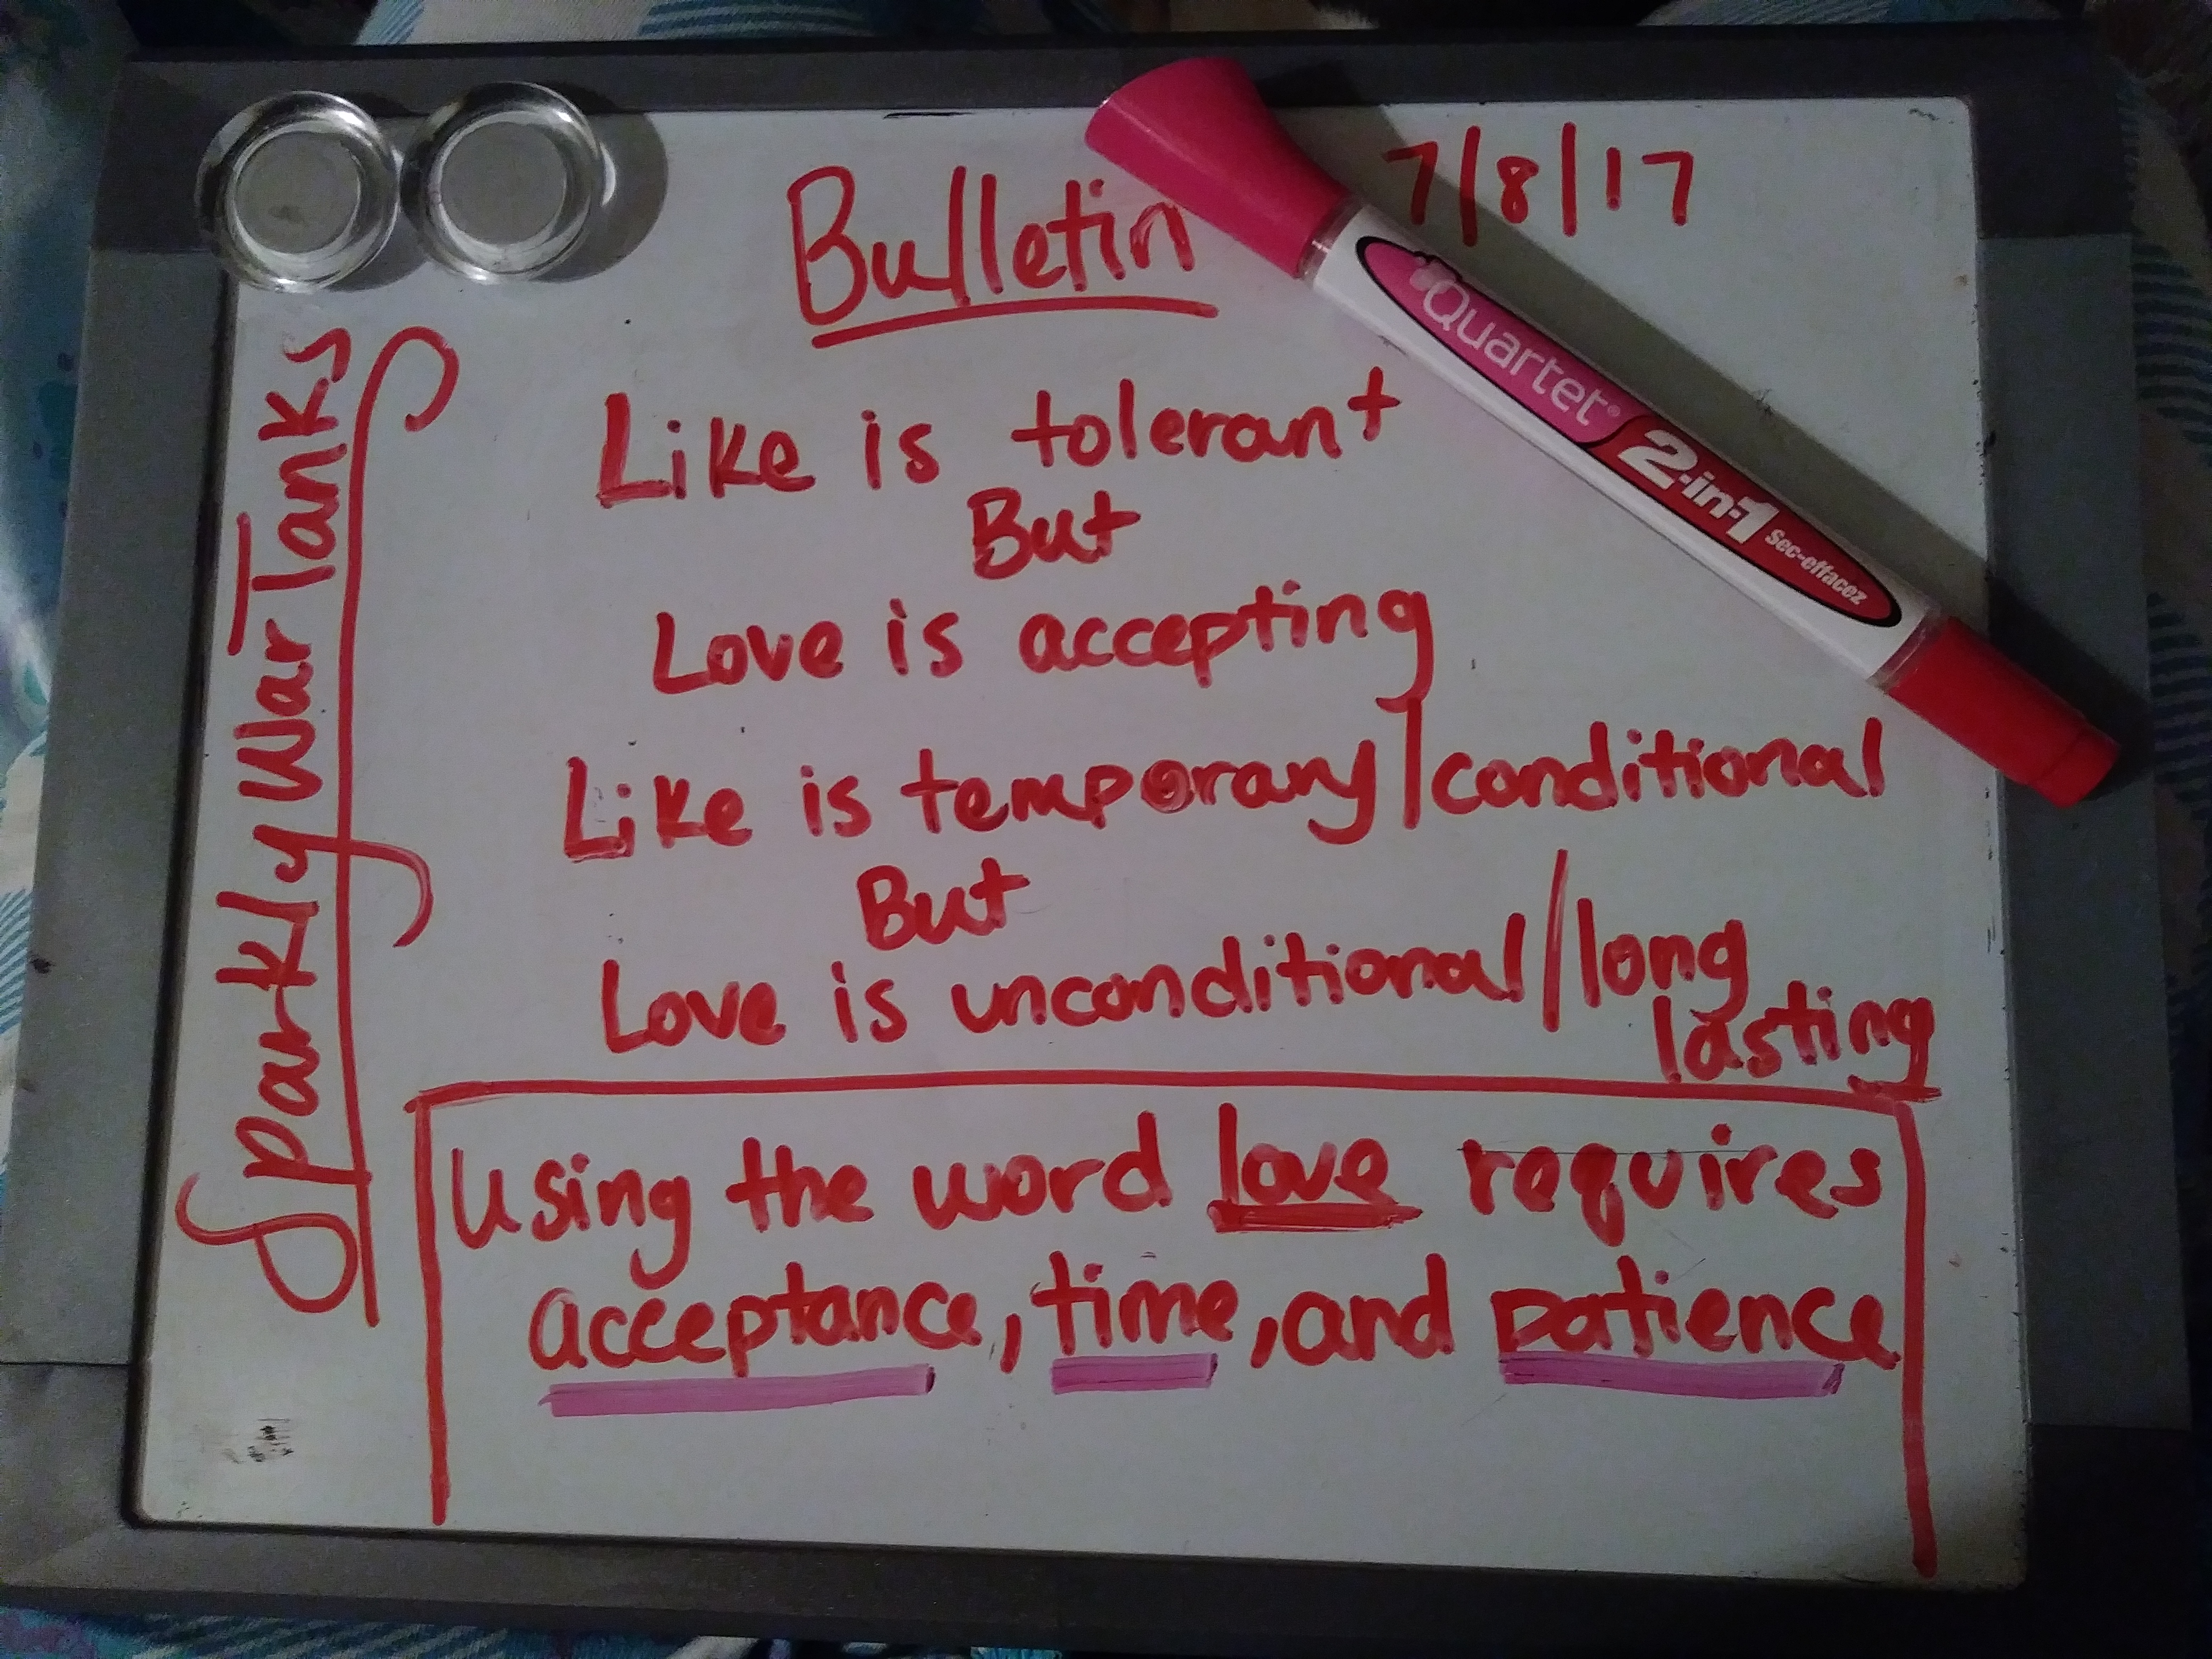 Bulletin
7/8/17
Quartet®
2-in-1
Sec-effacez
SparklyWarTanks
Like is tolerant
But
Love is accepting
Like is temporary/conditional
But
Love is unconditional/long
lasting
Using the word love requires
acceptance, time, and patience